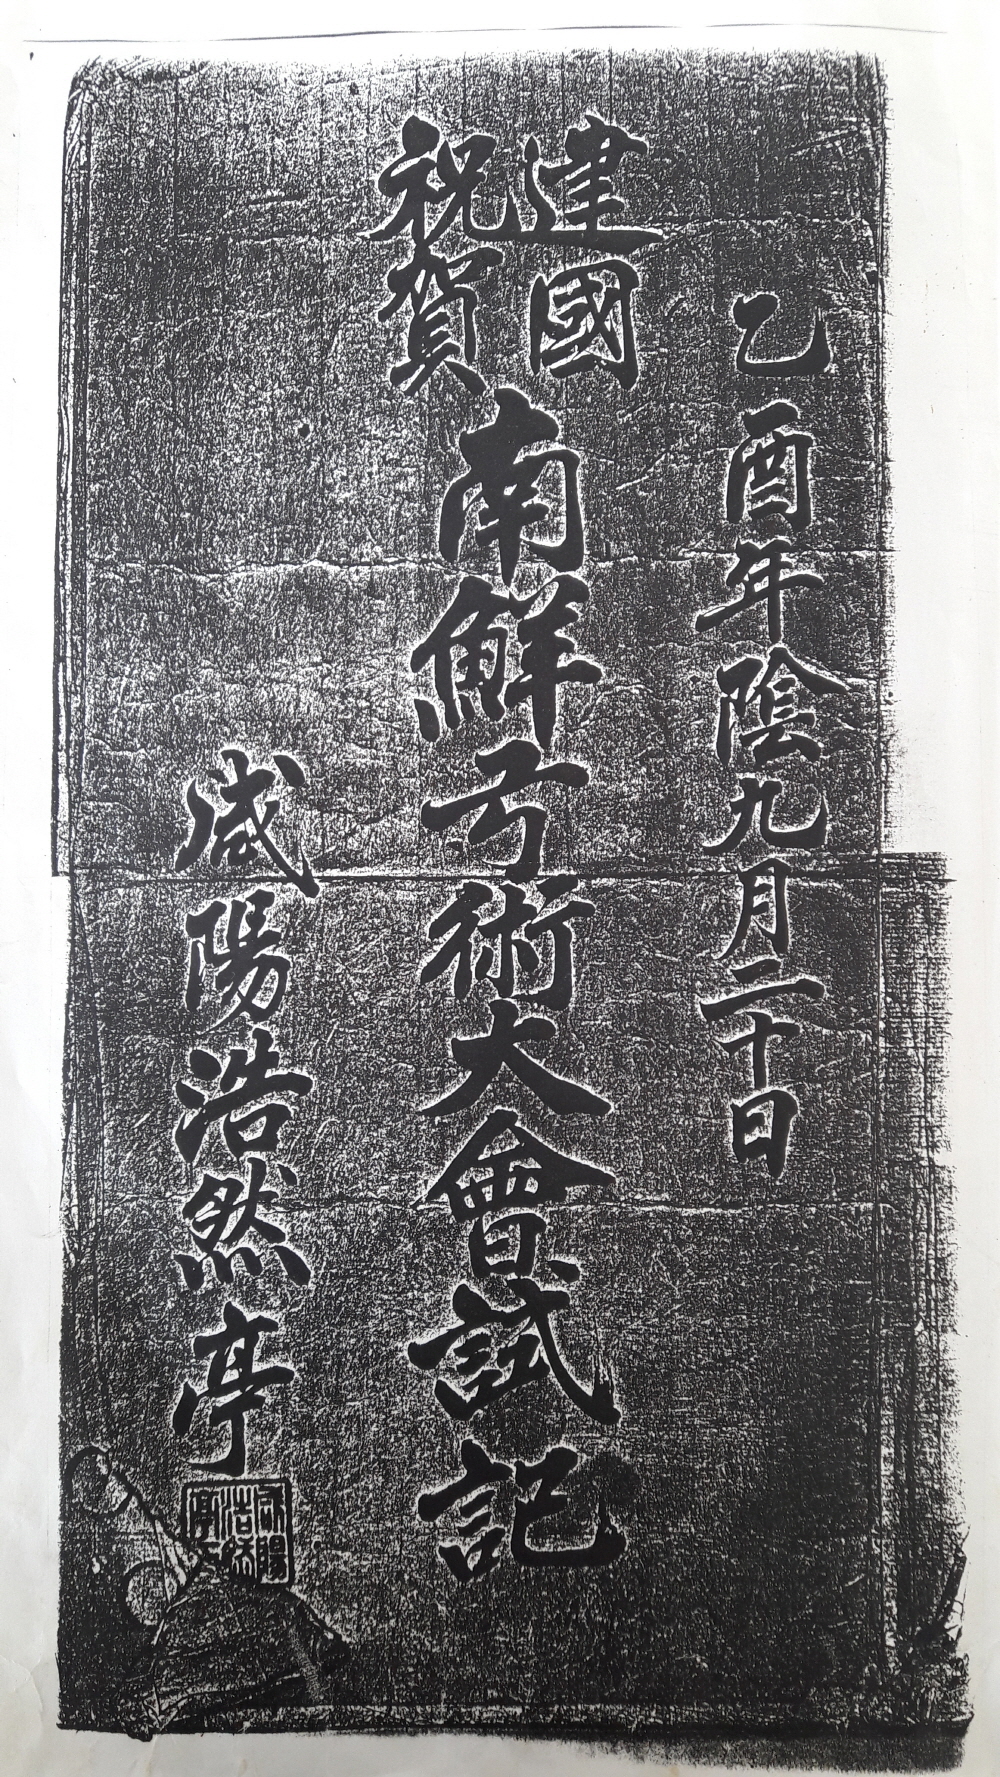 乙酉年陰九月二十日
建國
祝賀
南鮮弓術大會試記
咸陽浩然亭